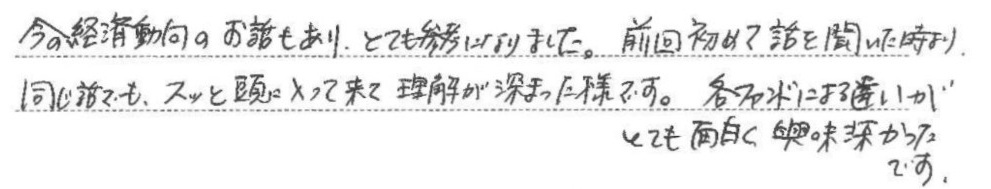 今の経済動向のお話もあり、とても参考になりました。前回初めて話を聞いた時より、
同じ話でも、スッと頭に入って来て理解が深まった様です。各ファンドによる違いが
とても面白く興味深かった
です。